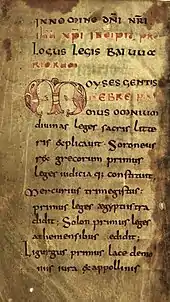 IN NOMINE DNI NRI
IHU XPI INCIPIT PRO
LOGUS LEGIS BAIUUA
RIORUM
MOYSES GENTIS
HEBREE PRI
mus omnium
divinas leges sacris litte
ris explicauit: Foroneus
rex grecorum primus
leges iudicia q; constituit
Mercurius trimegistus:
primus leges aegyptiis tra
didit; Solon primus leges
atheniensibus edidit;
Ligurgus primus lacedemo
niis iura & appollinis